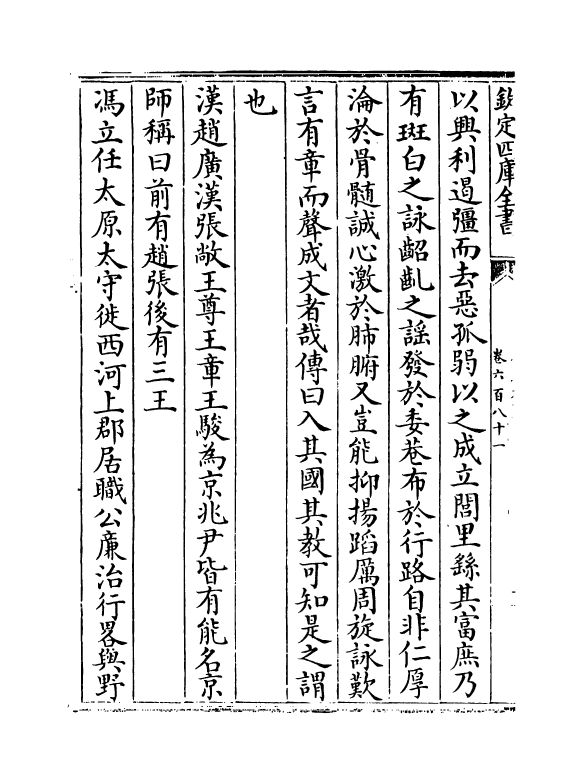 欽定四庫全書
卷六百八十一
以興利遏彊而去惡孤弱以之成立閭里繇其富庶乃
有斑白之詠齠齓之謡發於委巷布於行路自非仁厚
淪於骨髓誠心激於肺腑又豈能抑揚蹈厲周旋詠歎
言有章而聲成文者哉傳曰入其國其教可知是之謂
也
漢趙廣漢張敞王尊王章王駿為京兆尹皆有能名京
師稱曰前有趙張後有三王
馮立任太原太守徙西河上郡居職公亷治行畧與野